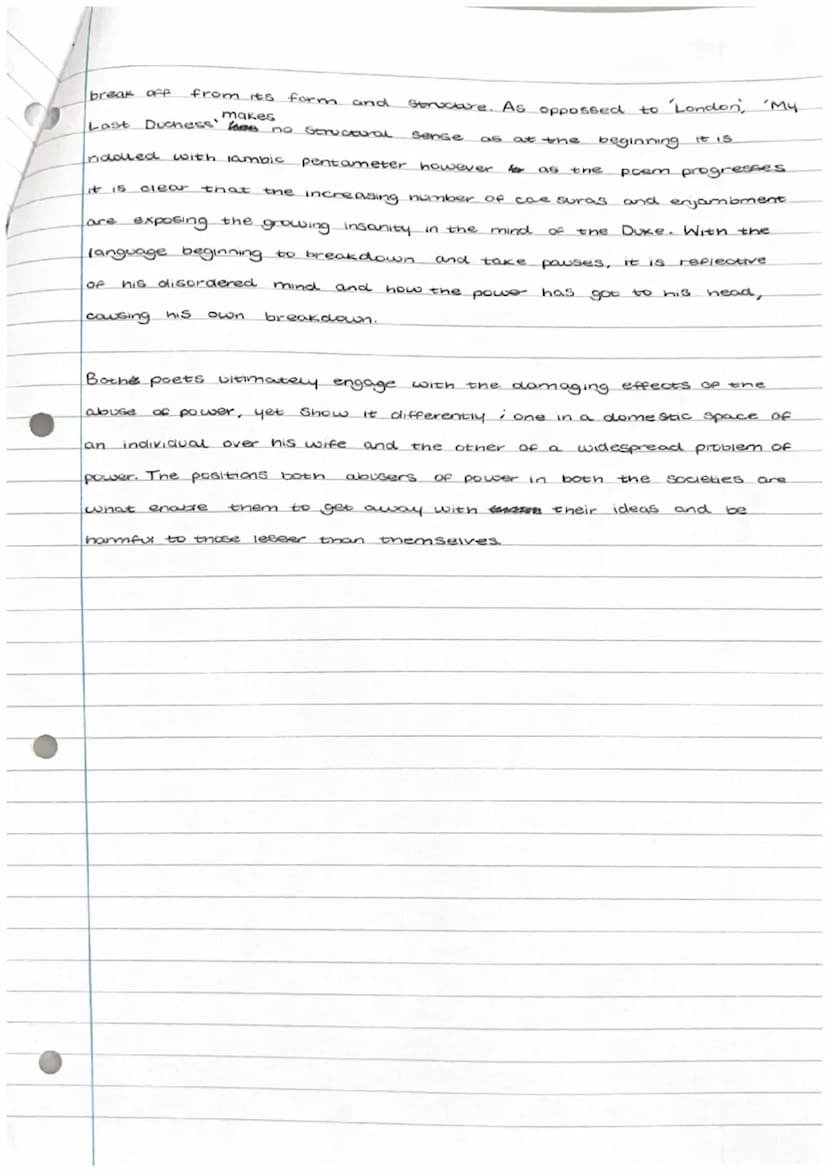 break off from its form and structure. As oppossed to 'London', 'My
Last Duchess' makes no structural sense as at the beginning it is
riddled with iambic pentameter however as the poem progresses
it is clear that the increasing number of caesuras and enjambment
are exposing the growing insanity in the mind of the Duke. With the
language beginning to breakdown and take pauses, it is reflective
of his disordered mind and how the power has got to his head,
causing his own breakdown.
Both poets ultimately engage with the damaging effects of the
abuse of power, yet show it differently ; one in a domestic space of
an individual over his wife and the other of a widespread problem of
power. The positions both abusers of power in both the societies are
what enable them to get away with their ideas and be
harmful to those lesser than themselves.